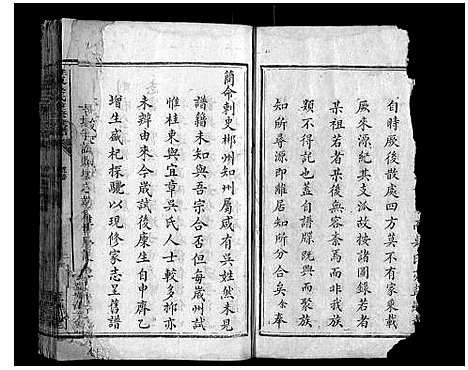 自時厥後散處四方莫不有家乘載
厥來源紀其支派故按諸圖錄若者
某祖若者某後無容紊焉而非我族
類不得託也蓋自譜牒既興而聚族
知所尋源即離居知所分合矣余奉
簡命刺史郴州知州屬咸有吳姓然未見
譜籍未知與吾宗合否但每歲州試
惟桂東與宜章吳氏人士較多郴亦
未辨由來今歲試後康生自申齊乙
增生盛杞探驪以現修家志呈舊譜